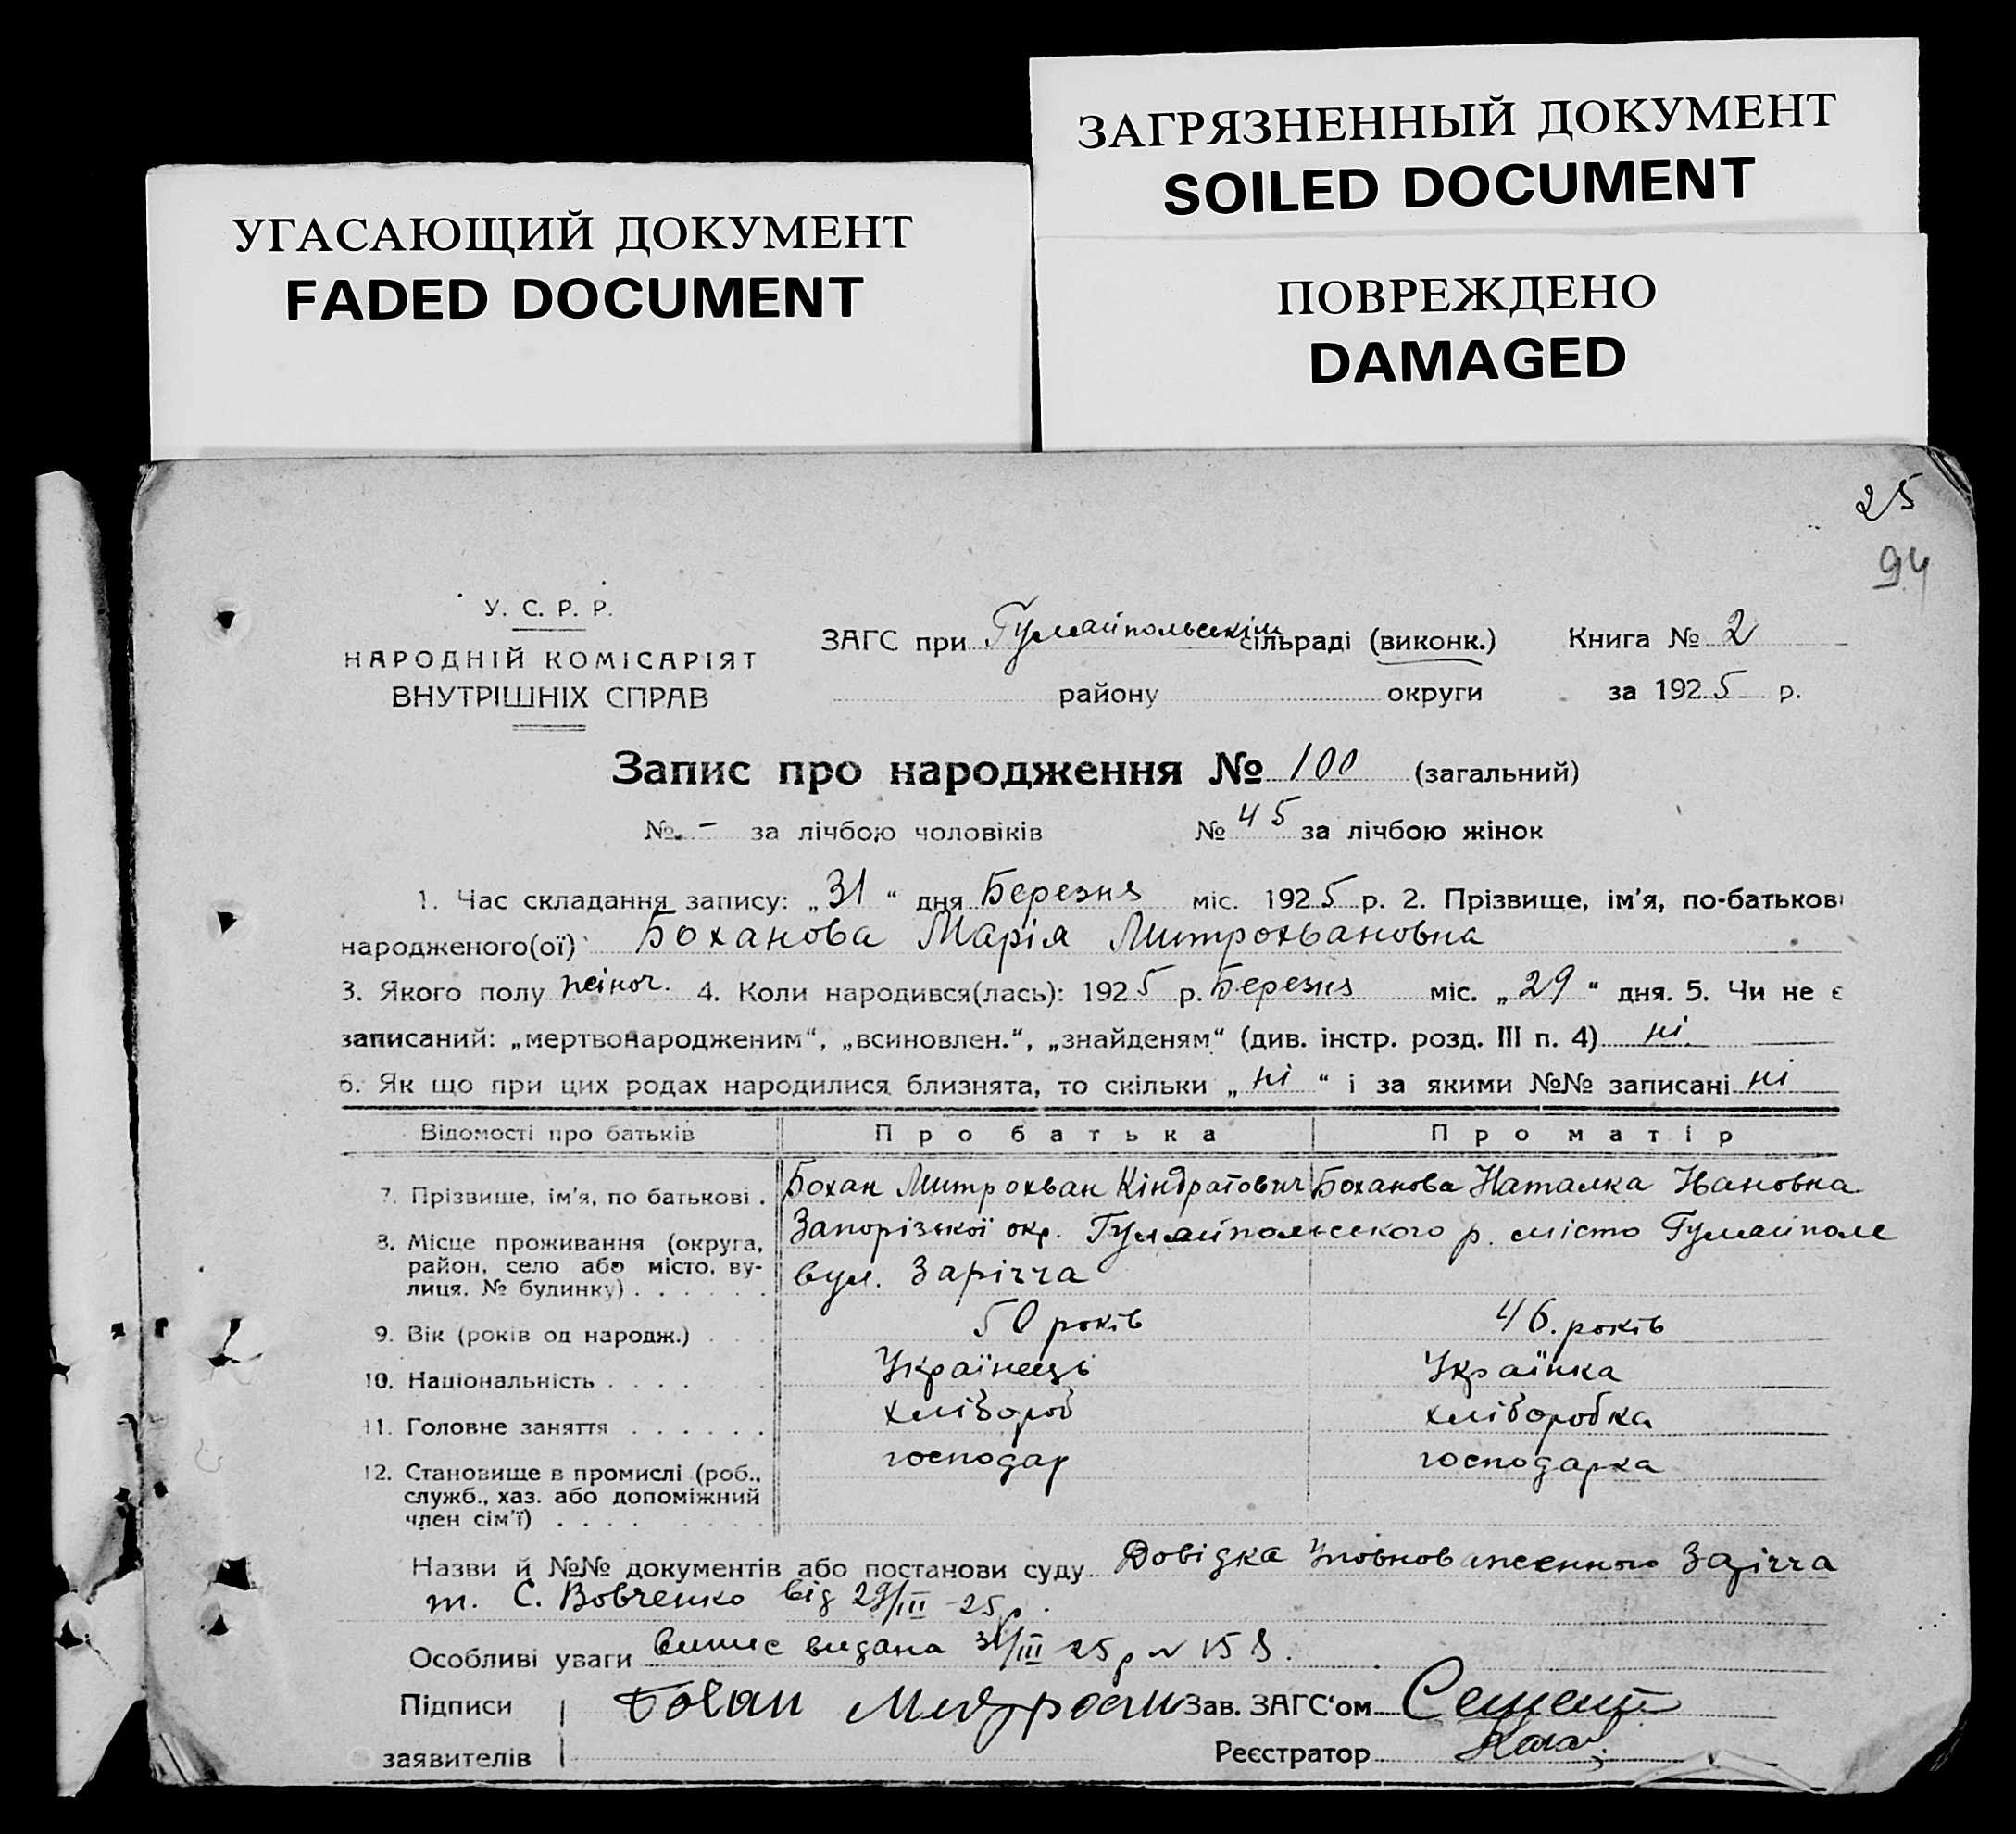 ЗАГРЯЗНЕННЫЙ ДОКУМЕНТ
SOILED DOCUMENT
УГАСАЮЩИЙ ДОКУМЕНТ
FADED DOCUMENT
ПОВРЕЖДЕНО
DAMAGED
25
94
У. С. Р. Р.
НАРОДНІЙ КОМІСАРІЯТ
ВНУТРІШНІХ СПРАВ
ЗАГС при Гуляйпольськім сільраді (виконк.) Книга № 2
району округи за 1925 р.
Запис про народження № 100 (загальний)
№ - за лічбою чоловіків № 45 за лічбою жінок
1. Час складання запису: „31“ дня Березня міс. 1925 р. 2. Прізвище, ім'я, по-батькові
народженого(ої) Боханова Марія Митрохвановна
3. Якого полу жіноч. 4. Коли народився(лась): 1925 р. Березня міс. „29“ дня. 5. Чи не є
записаний: „мертвонародженим“, „всиновлен.“, „знайденям“ (див. інстр. розд. III п. 4) ні.
6. Як що при цих родах народилися близнята, то скільки „ні“ і за якими №№ записані ні
Відомості про батьків Про батька Про матір
7. Прізвище, ім'я, по батькові . Бохан Митрохван Кіндратович Боханова Наталка Івановна
8. Місце проживання (округа, район, село або місто, вулиця, № будинку) . . . . . . Запорізької окр. Гуляйпольського р. місто Гуляйполе
вул. Зарічча
9. Вік (років од народж.) . . . 50 років 46. років
10. Національність . . . . Українець Українка
11. Головне заняття . . . . . . хлібороб хліборобка
12. Становище в промислі (роб., служб., хаз. або допоміжний член сім'ї) . . . . господар господарка
Назви й №№ документів або постанови суду Довідка Уповноваженного Зарічча
т. С. Вовченко від 29/III-25 р.
Особливі уваги випис видана 31/III 25 р №158.
Підписи Бохан Зав. ЗАГС'ом
заявителів Реєстратор